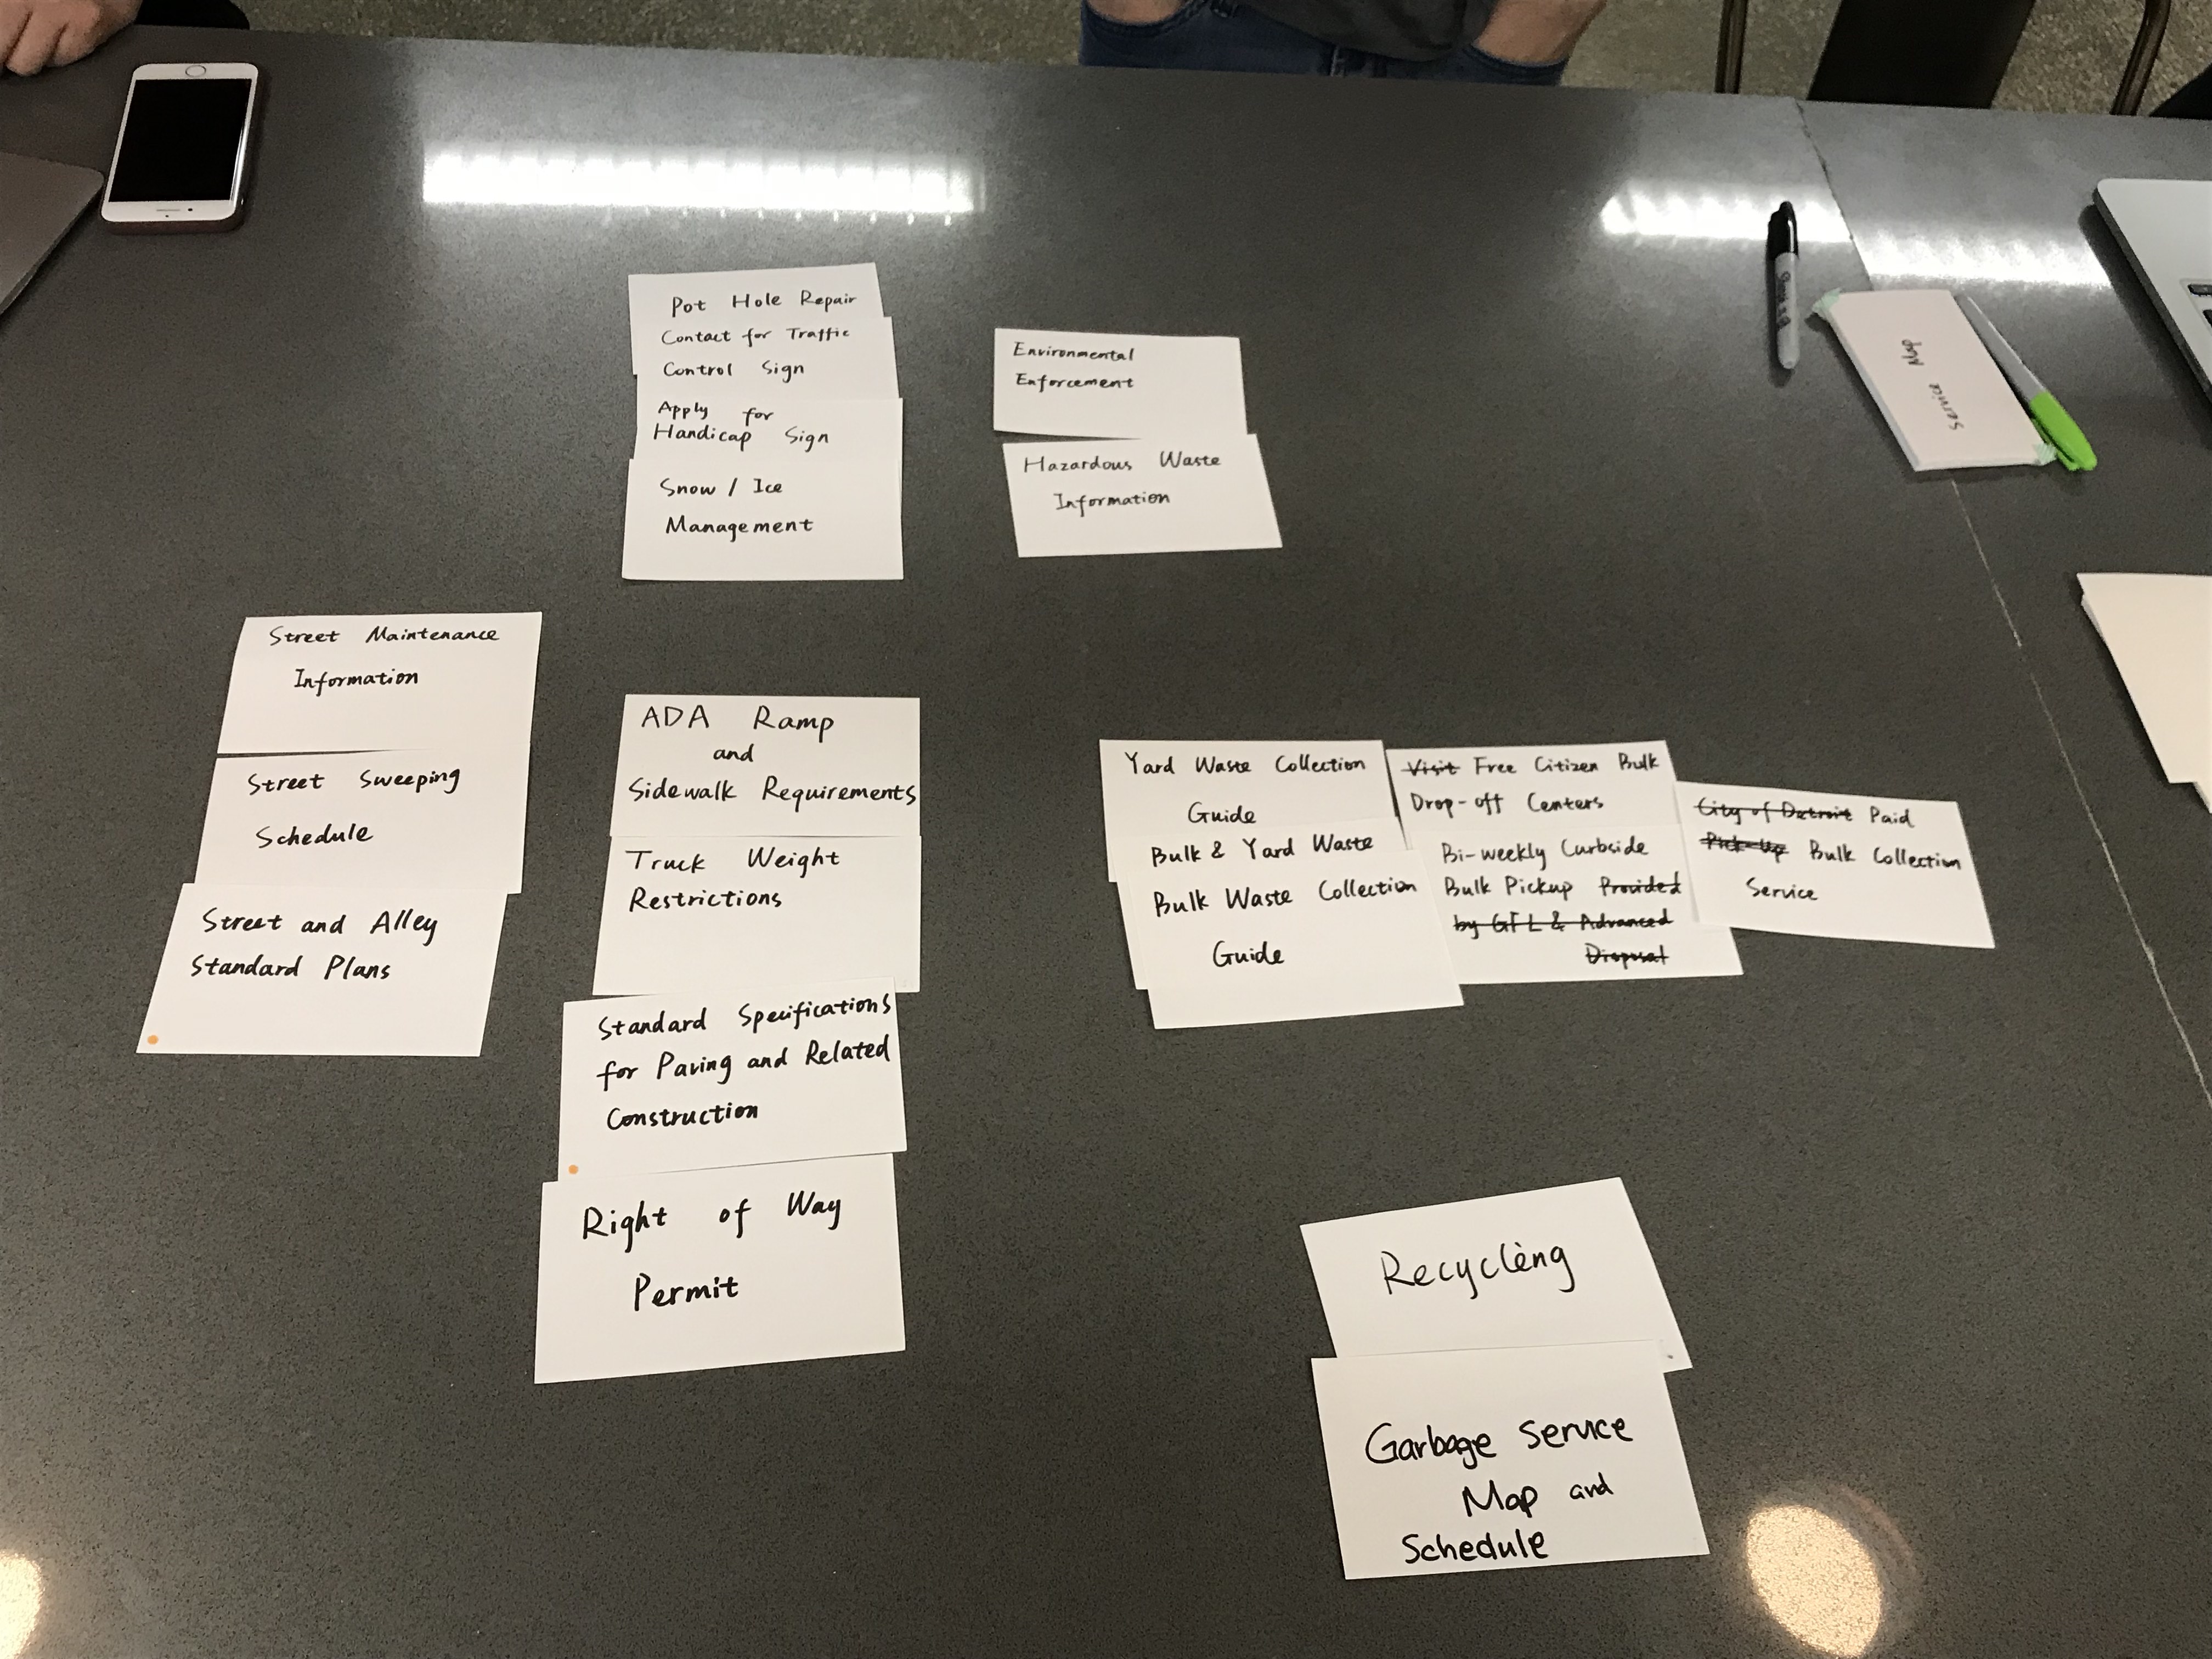 Pot Hole Repair
Contact for Traffic
Control Sign
Apply for
Handicap Sign
Snow / Ice
Management
Environmental
Enforcement
Hazardous Waste
Information
Service Map
Street Maintenance
Information
Street Sweeping
Schedule
Street and Alley
Standard Plans
ADA Ramp
and
Sidewalk Requirements
Truck Weight
Restrictions
Standard Specifications
for Paving and Related
Construction
Right of Way
Permit
Yard Waste Collection
Guide
Bulk & Yard Waste
Bulk Waste Collection
Guide
Visit Free Citizen Bulk
Drop-off Centers
Bi-weekly Curbside
Bulk Pickup Provided
by GFL & Advanced
Disposal
City of Detroit Paid
Pick-Up Bulk Collection
Service
Recycling
Garbage Service
Map and
Schedule